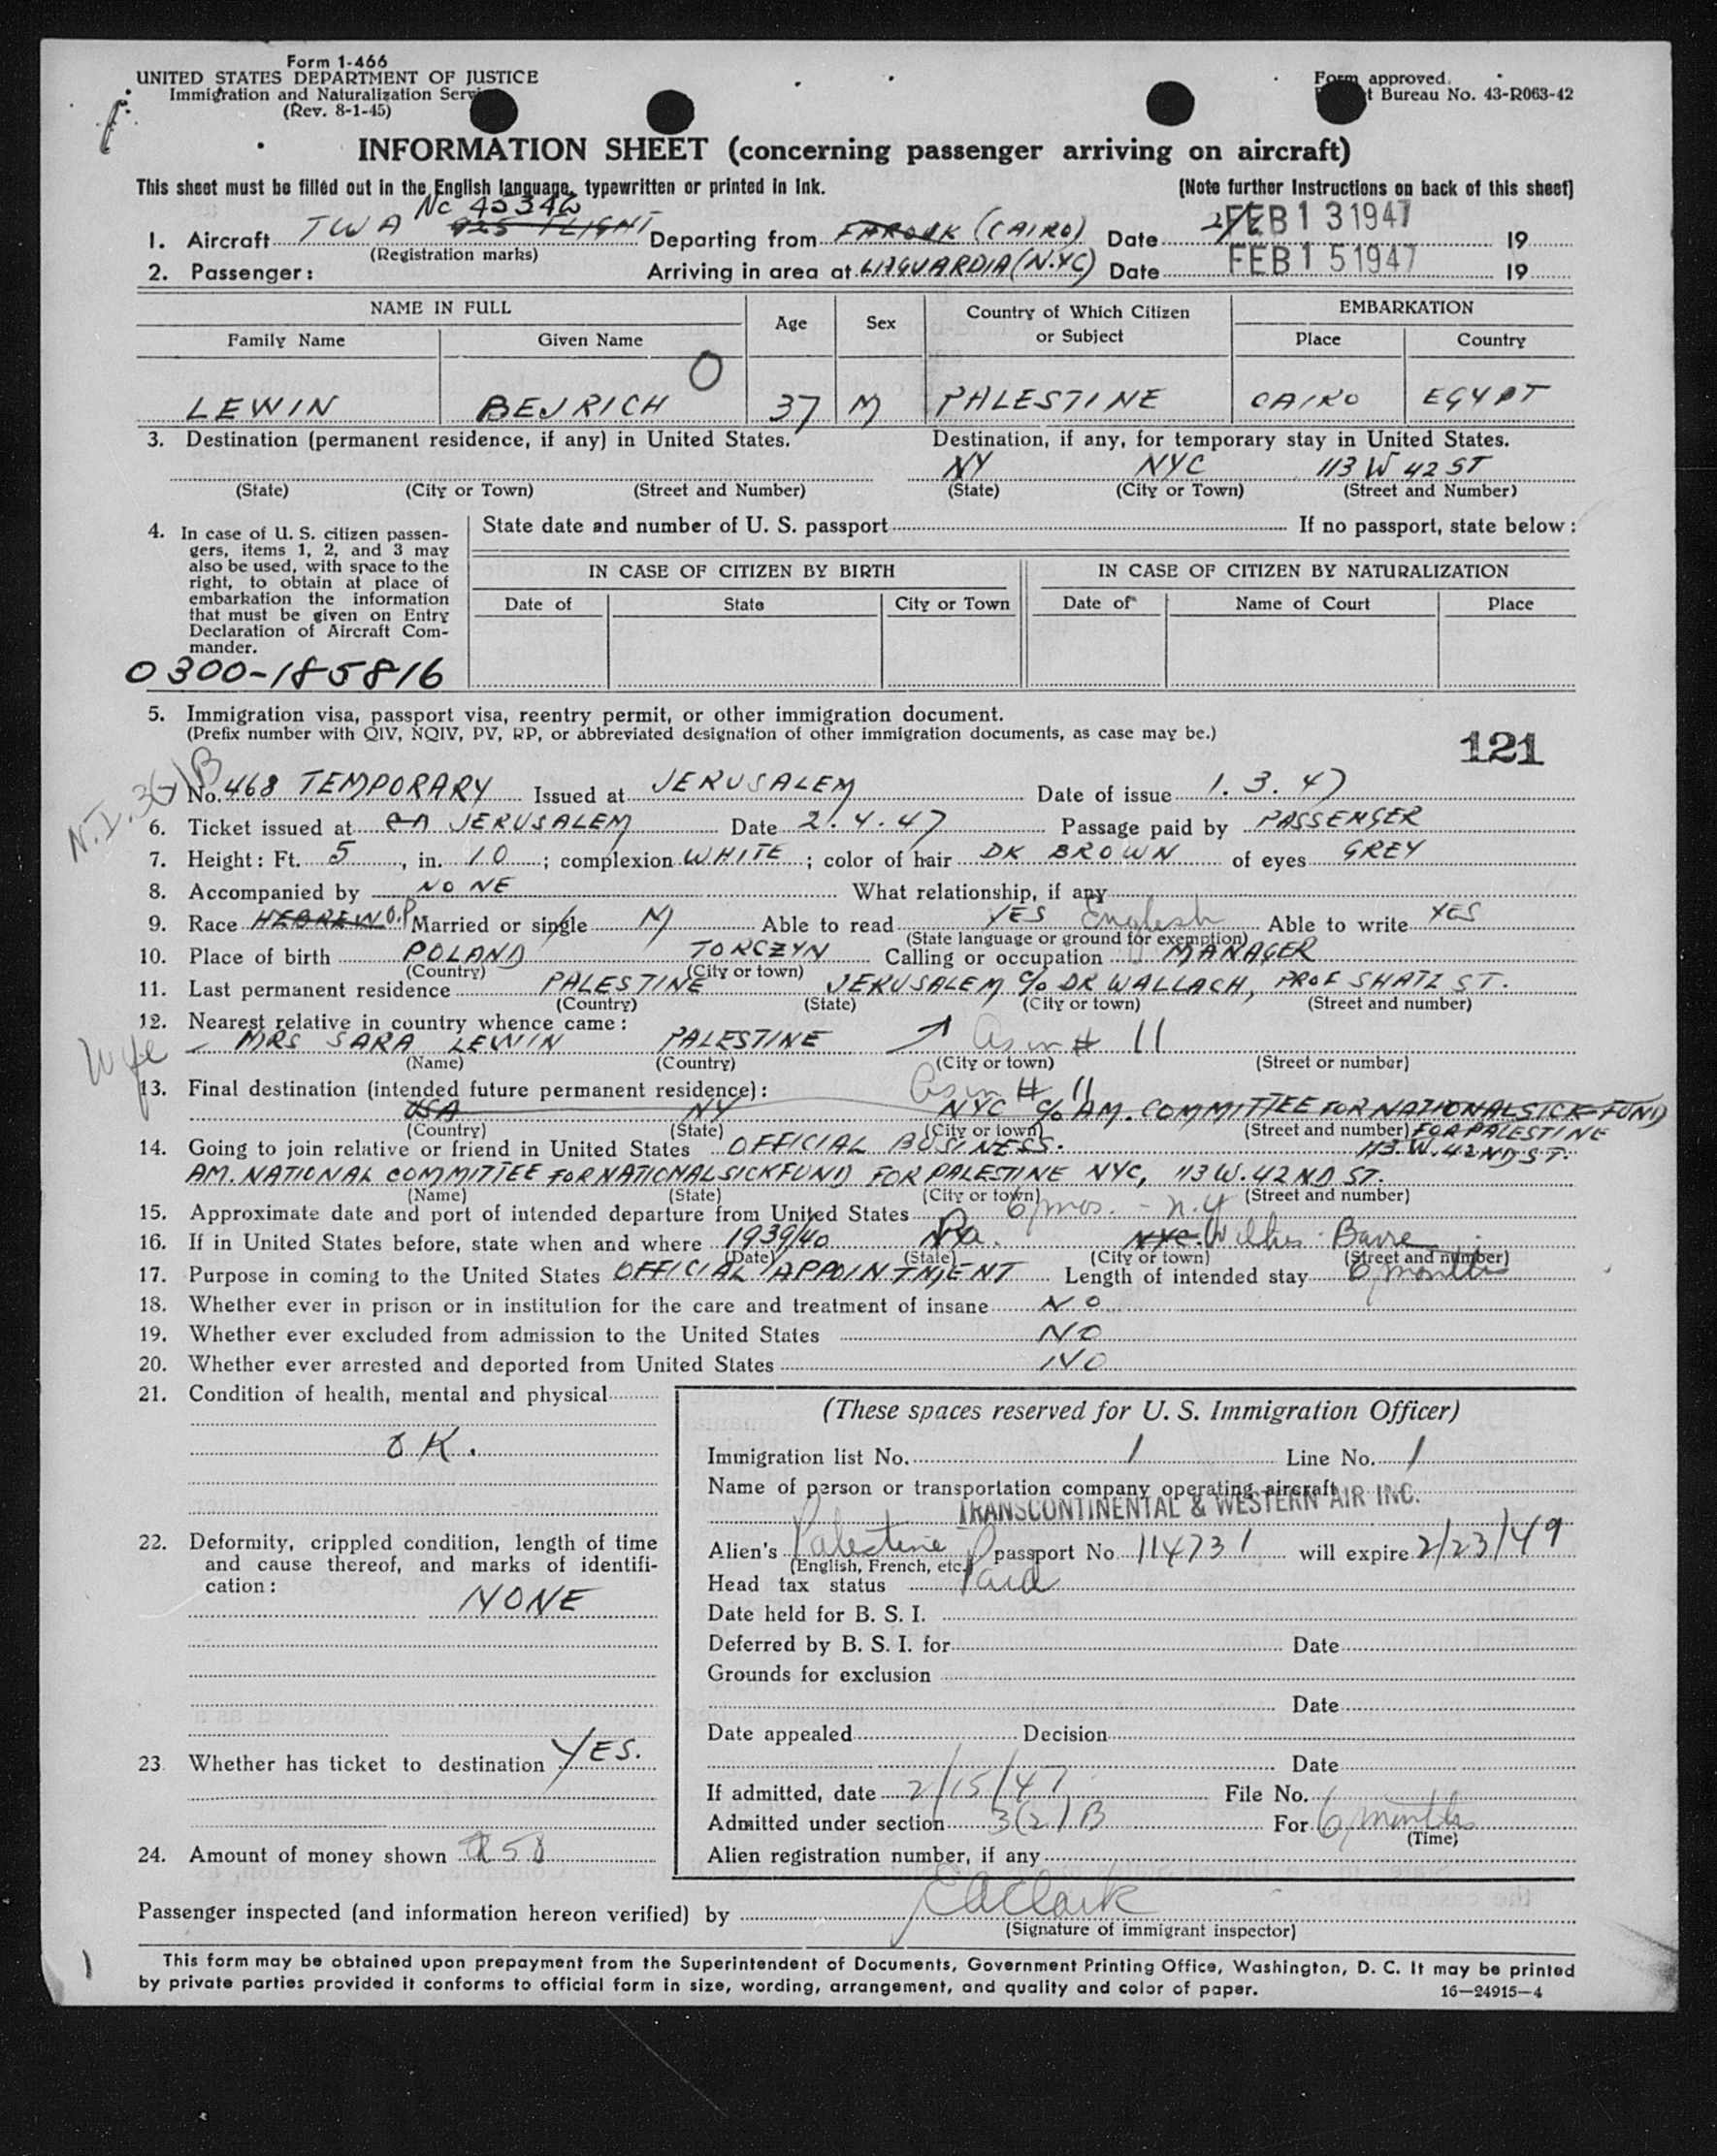 Form 1-466
UNITED STATES DEPARTMENT OF JUSTICE
Immigration and Naturalization Serv
(Rev. 8-1-45)
Form approved.
t Bureau No. 43-R063-42
INFORMATION SHEET (concerning passenger arriving on aircraft)
This sheet must be filled out in the English language, typewritten or printed in ink.
(Note further Instructions on back of this sheet)
Nc 45346
1. Aircraft TWA 925 FLIGHT Departing from FAROUK (CAIRO) Date FEB 13 1947 19
(Registration marks)
2. Passenger: Arriving in area at LAGUARDIA (N.YC) Date FEB 15 1947 19
NAME IN FULL Age Sex Country of Which Citizen or Subject EMBARKATION
Family Name Given Name Place Country
O
LEWIN BEJRICH 37 M PALESTINE CAIRO EGYPT
3. Destination (permanent residence, if any) in United States. Destination, if any, for temporary stay in United States.
NY NYC 113 W 42 ST
(State) (City or Town) (Street and Number) (State) (City or Town) (Street and Number)
4. In case of U. S. citizen passengers, items 1, 2, and 3 may also be used, with space to the right, to obtain at place of embarkation the information that must be given on Entry Declaration of Aircraft Commander.
State date and number of U. S. passport If no passport, state below:
IN CASE OF CITIZEN BY BIRTH IN CASE OF CITIZEN BY NATURALIZATION
Date of State City or Town Date of Name of Court Place
0300-185816
5. Immigration visa, passport visa, reentry permit, or other immigration document.
(Prefix number with QIV, NQIV, PV, RP, or abbreviated designation of other immigration documents, as case may be.)
121
No. 468 TEMPORARY Issued at JERUSALEM Date of issue 1. 3. 47
6. Ticket issued at JERUSALEM Date 2. 4. 47 Passage paid by PASSENGER
7. Height: Ft. 5, in. 10; complexion WHITE; color of hair DK BROWN of eyes GREY
8. Accompanied by NONE What relationship, if any
9. Race HEBREW O.P Married or single M Able to read YES English Able to write YES
(State language or ground for exemption)
10. Place of birth POLAND TORCZYN Calling or occupation MANAGER
(Country) (City or town)
11. Last permanent residence PALESTINE JERUSALEM c/o DR WALLACH, PROF SHATZ ST.
(Country) (State) (City or town) (Street and number)
12. Nearest relative in country whence came:
Wife MRS SARA LEWIN PALESTINE As in # 11
(Name) (Country) (City or town) (Street or number)
13. Final destination (intended future permanent residence): As in # 11
USA NY NYC c/o AM. COMMITTEE FOR NATIONAL SICK FUND
(Country) (State) (City or town) (Street and number) FOR PALESTINE
14. Going to join relative or friend in United States OFFICIAL BUSINESS. 113.W.42ND ST.
AM. NATIONAL COMMITTEE FOR NATIONAL SICKFUND FOR PALESTINE NYC, 113 W. 42ND ST.
(Name) (State) (City or town) (Street and number)
15. Approximate date and port of intended departure from United States 6 mos. - N.Y
16. If in United States before, state when and where 1939/40 Pa. NYC. Wilkes Barre
(Date) (State) (City or town) (Street and number)
17. Purpose in coming to the United States OFFICIAL APPOINTMENT Length of intended stay 6 months
18. Whether ever in prison or in institution for the care and treatment of insane NO
19. Whether ever excluded from admission to the United States NO
20. Whether ever arrested and deported from United States NO
21. Condition of health, mental and physical
OK.
22. Deformity, crippled condition, length of time and cause thereof, and marks of identification:
NONE
23. Whether has ticket to destination YES.
24. Amount of money shown 50
(These spaces reserved for U. S. Immigration Officer)
Immigration list No. 1 Line No. 1
Name of person or transportation company operating aircraft
TRANSCONTINENTAL & WESTERN AIR INC.
Alien's Palestine passport No. 114731 will expire 2/23/49
(English, French, etc.)
Head tax status Paid
Date held for B. S. I.
Deferred by B. S. I. for Date
Grounds for exclusion
Date
Date appealed Decision
Date
If admitted, date 2/15/47 File No.
Admitted under section 3(2)B For 6 months
(Time)
Alien registration number, if any
Passenger inspected (and information hereon verified) by EAClark
(Signature of immigrant inspector)
This form may be obtained upon prepayment from the Superintendent of Documents, Government Printing Office, Washington, D. C. It may be printed
by private parties provided it conforms to official form in size, wording, arrangement, and quality and color of paper.
16—24915-4